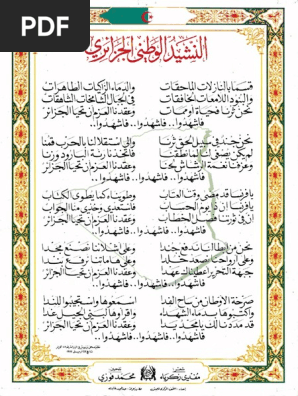 PDF
النشيد الوطني الجزائري
قسما بالنازلات الماحقات والدماء الزاكيات الطاهرات
والبنود اللامعات الخافقات في الجبال الشامخات الشاهقات
نحن ثرنا فحياة او ممات وعقدنا العزم ان تحيا الجزائر
فاشهدوا.. فاشهدوا.. فاشهدوا..
نحن جند في سبيل الحق ثرنا والى استقلالنا بالحرب قمنا
لم يكن يصغى لنا لما نطقنا فاتخذنا رنة البارود وزنا
وعزفنا نغمة الرشاش لحنا وعقدنا العزم ان تحيا الجزائر
فاشهدوا.. فاشهدوا.. فاشهدوا..
يا فرنسا قد مضى وقت العتاب وطويناه كما يطوى الكتاب
يا فرنسا ان ذا يوم الحساب فاستعدي وخذي منا الجواب
ان في ثورتنا فصل الخطاب وعقدنا العزم ان تحيا الجزائر
فاشهدوا.. فاشهدوا.. فاشهدوا..
نحن من ابطالنا ندفع جندا وعلى اشلائنا نصنع مجدا
وعلى ارواحنا نصعد خلدا وعلى هاماتنا نرفع بندا
جبهة التحرير اعطيناك عهدا وعقدنا العزم ان تحيا الجزائر
فاشهدوا.. فاشهدوا.. فاشهدوا..
صرخة الاوطان من ساح الفدا اسمعوها واستجيبوا للندا
واكتبوها بدماء الشهداء واقراوها لبني الجيل غدا
قد مددنا لك يا مجد يدا وعقدنا العزم ان تحيا الجزائر
فاشهدوا.. فاشهدوا.. فاشهدوا..
مفدي زكرياء
محمد فوزي